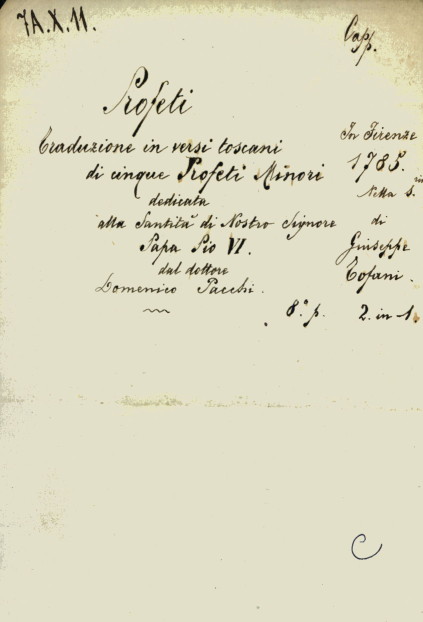 7A.X.11.
Capp.
Profeti
Traduzione in versi toscani
di cinque Profeti Minori
dedicata
alla Santità di Nostro Signore
Papa Pio VI.
dal dottore
Domenico Pacchi.
In Firenze
1785.
Nella S.
di
Giuseppe
Tofani.
8.° p. 2. in 1.
C